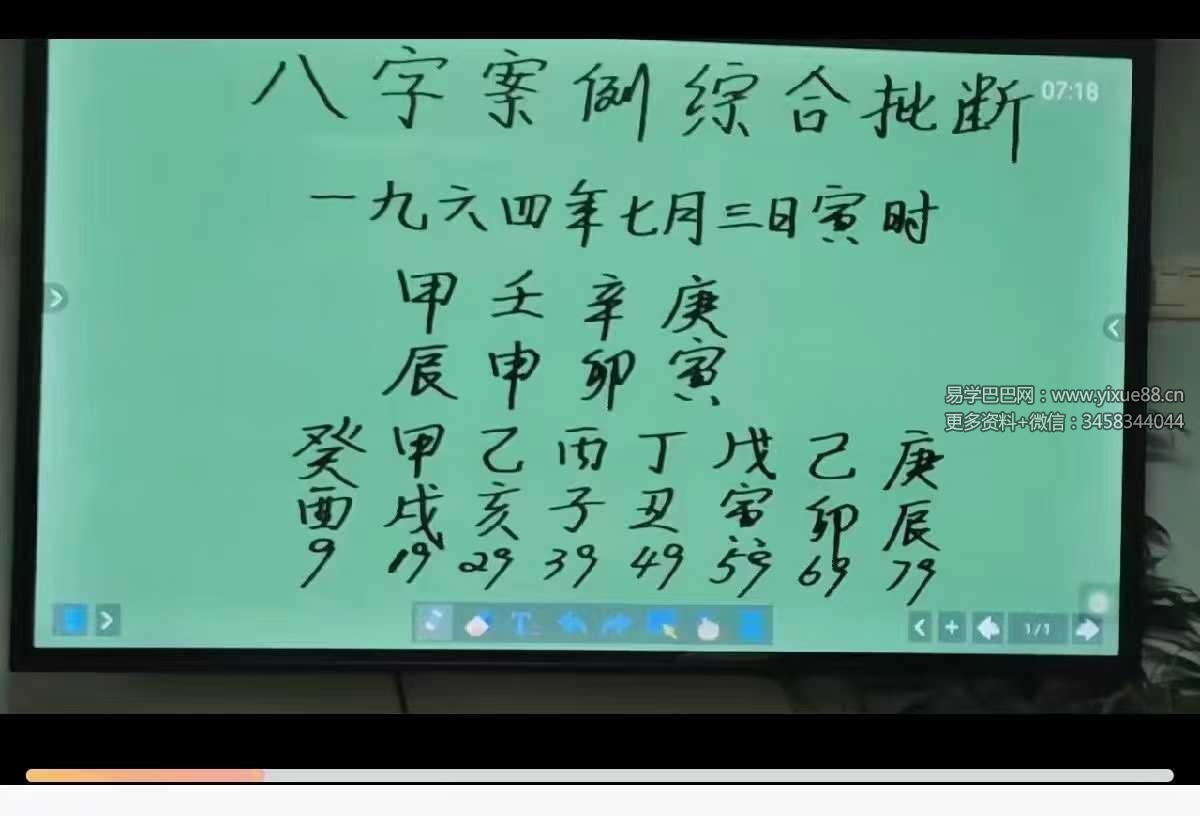 八字案例综合批断
07:18
一九六四年七月三日寅时
甲 壬 辛 庚
辰 申 卯 寅
易学巴巴网：www.yixue88.cn
更多资料+微信：3458344044
癸 甲 乙 丙 丁 戊 己 庚
酉 戌 亥 子 丑 寅 卯 辰
9 19 29 39 49 59 69 79
T
1/1